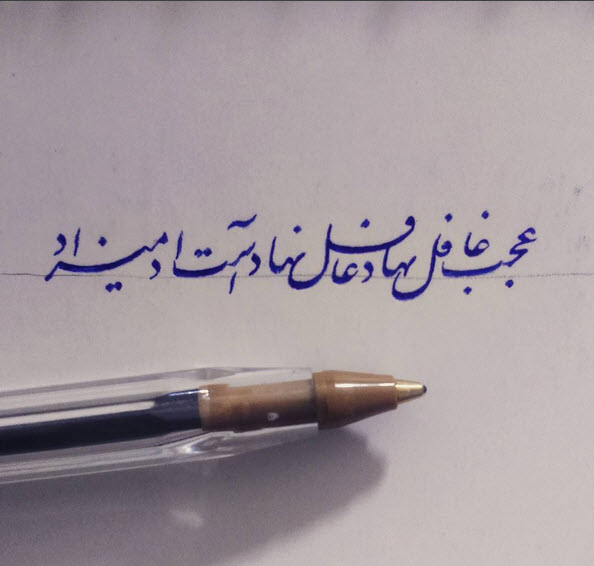 عجب غافل نهاد غافل نهاد است ادمیزاد